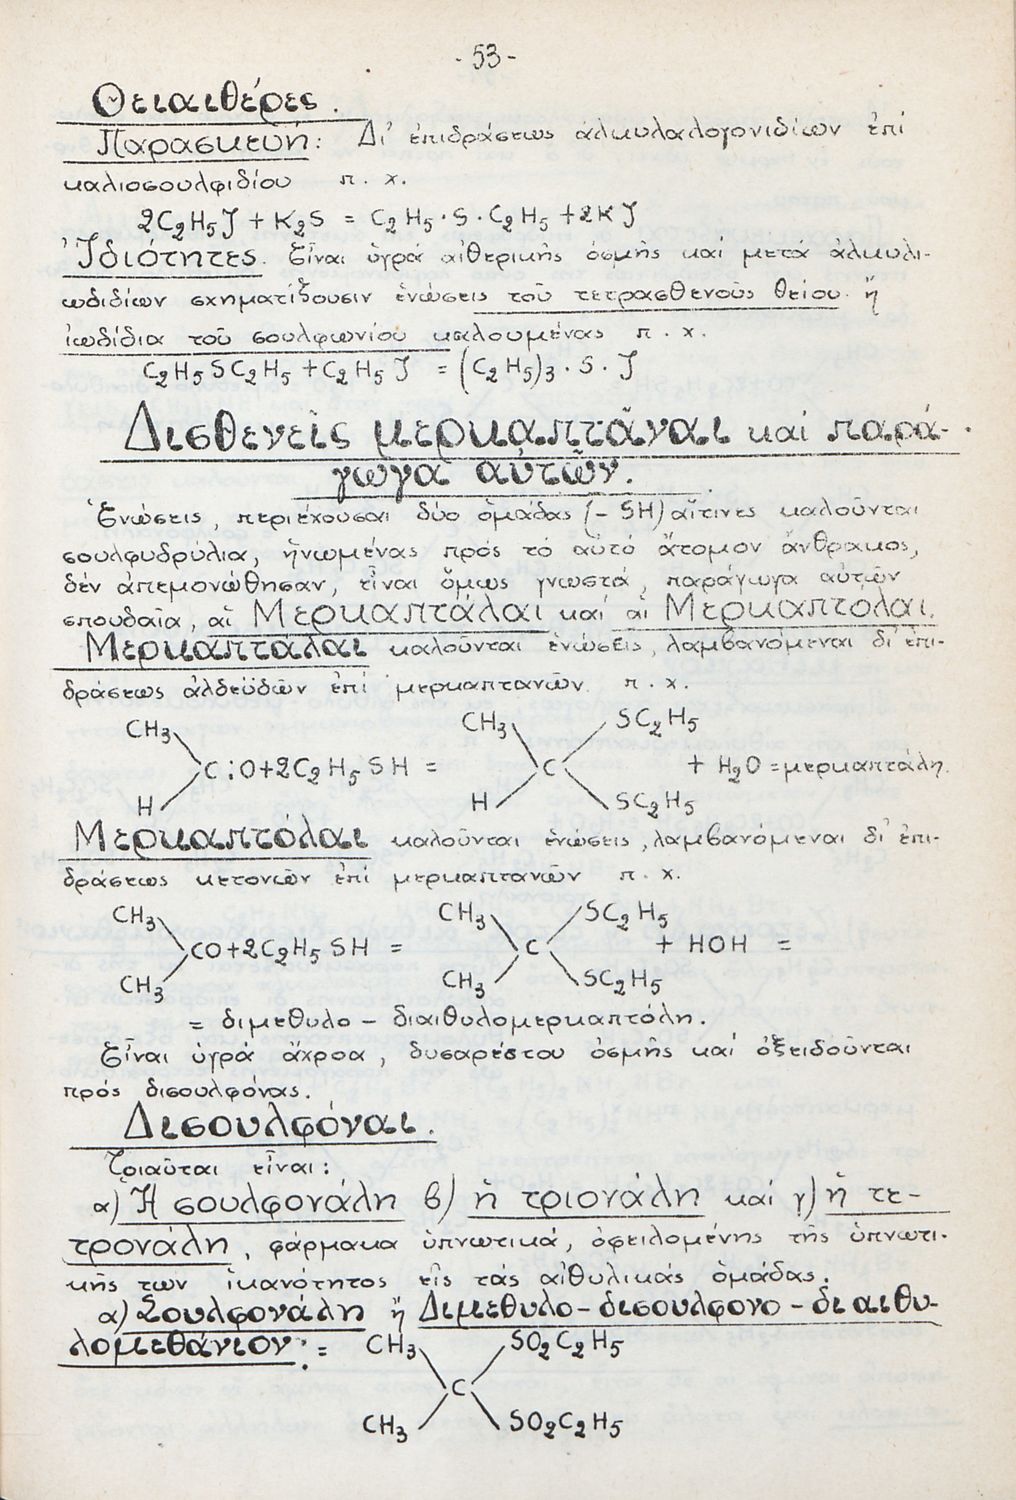 - 53 -
Θειαιθέρες.
Παρασκευή: Δι' ἐπιδράσεως ἀλκυλαλογονιδίων ἐπί
καλιοσουλφιδίου π.χ.
2C₂H₅J + K₂S = C₂H₅·S·C₂H₅ + 2KJ
Ἰδιότητες. Εἶναι ὑγρά αἰθερικῆς ὀσμῆς καί μετά ἀλκυλι-
ωδιδίων σχηματίζουσιν ἑνώσεις τοῦ τετρασθενοῦς θείου ἤ
ἰωδίδια τοῦ σουλφωνίου καλουμένας π.χ.
C₂H₅SC₂H₅ + C₂H₅J = (C₂H₅)₃·S·J
Δισθενεῖς μερκαπτᾶναι καί παρά-
γωγα αὐτῶν.
Ἑνώσεις, περιέχουσαι δύο ὁμάδας (-SH) αἵτινες καλοῦνται
σουλφυδρύλια, ἡνωμένας πρός τό αὐτό ἄτομον ἄνθρακος,
δέν ἀπεμονώθησαν, εἶναι ὅμως γνωστά, παράγωγα αὐτῶν
σπουδαῖα, αἱ Μερκαπτάλαι καί αἱ Μερκαπτόλαι.
Μερκαπτάλαι καλοῦνται ἑνώσεις, λαμβανόμεναι δι' ἐπι-
δράσεως ἀλδεϋδῶν ἐπί μερκαπτανῶν π.χ.
CH₃ CH₃ SC₂H₅
C:O+2C₂H₅SH = C + H₂O = μερκαπτάλη.
H H SC₂H₅
Μερκαπτόλαι καλοῦνται ἑνώσεις, λαμβανόμεναι δι' ἐπι-
δράσεως κετονῶν ἐπί μερκαπτανῶν π.χ.
CH₃ CH₃ SC₂H₅
CO+2C₂H₅SH = C + HOH =
CH₃ CH₃ SC₂H₅
= διμεθυλο - διαιθυλομερκαπτόλη.
Εἶναι ὑγρά ἄχροα, δυσαρέστου ὀσμῆς καί ὀξειδοῦνται
πρός δισουλφόνας.
Δισουλφόναι.
Τοιαῦται εἶναι:
α) Ἡ σουλφονάλη β) ἡ τριονάλη καί γ) ἡ τε-
τρονάλη, φάρμακα ὑπνωτικά, ὀφειλομένης τῆς ὑπνωτι-
κῆς των ἱκανότητος εἰς τάς αἰθυλικάς ὁμάδας.
α) Σουλφονάλη ἤ Διμεθυλο-δισουλφονο-διαιθυ-
λομεθάνιον: = CH₃ SO₂C₂H₅
C
CH₃ SO₂C₂H₅